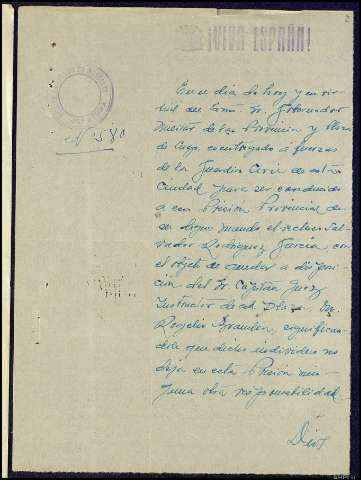 2
¡VIVA ESPAÑA!
Nº 580
En el día de hoy y en vir
tud del Excmo. Sr. Gobernador
Militar de la Provincia y Plaza
de Lugo, es entregado á fuerzas
de la Guardia Civil de esta
Ciudad para ser conducido
a esa Prisión Provincial de
su digno mando el recluso Sal-
vador Rodríguez García, con
el objeto de quedar a disposi-
ción del Sr. Capitán Juez
Instructor de esa Plaza, Dn.
Rogelio significan-
dole que dicho individuo no
deja en esta Prisión nin-
guna otra responsabilidad.
Dios